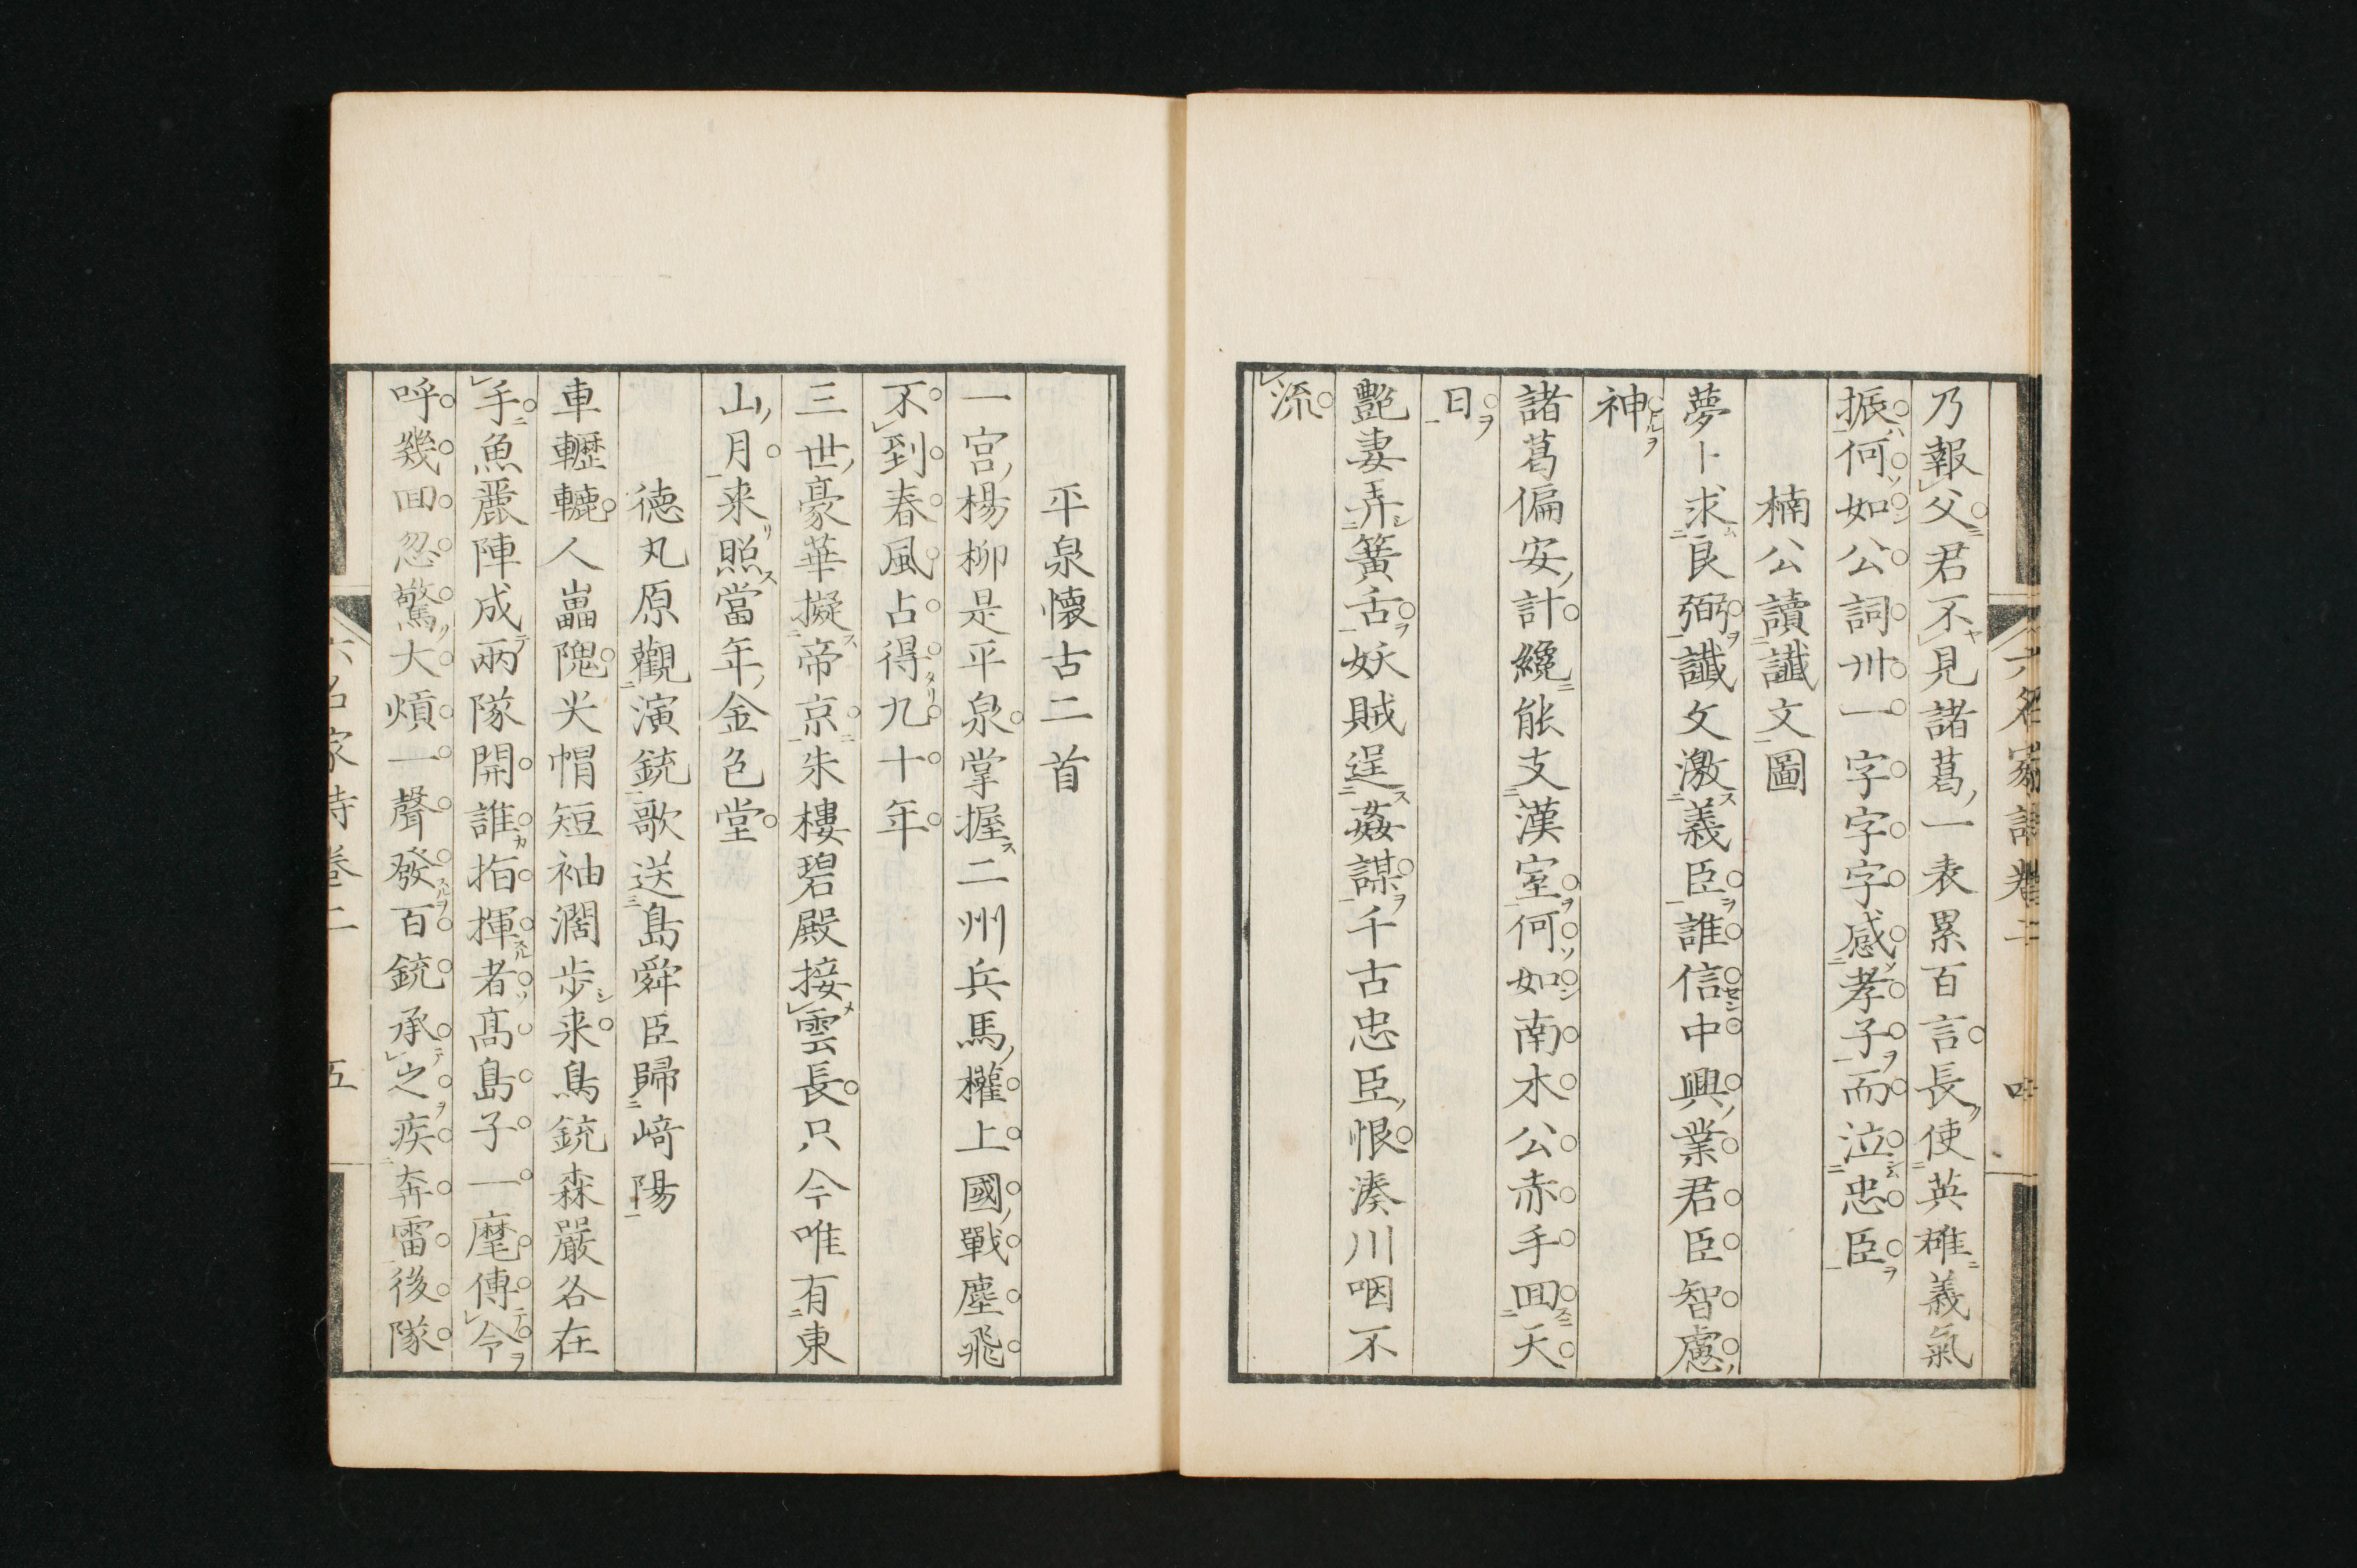 乃報父君不見諸葛一表累百言長使英雄義氣
振何如公詞卅一字字字感孝子而泣忠臣
楠公讀讖文圖
夢卜求良弼讖文激義臣誰信中興業君臣智慮
神
諸葛偏安計纔能支漢室何如南木公赤手回天
日
艷妻弄簧舌妖賊逞姦謀千古忠臣恨湊川咽不
流
平泉懷古二首
一宮楊柳是平泉掌握二州兵馬權上國戰塵飛
不到春風占得九十年
三世豪華擬帝京朱樓碧殿接雲長只今唯有東
山月来照當年金色堂
徳丸原觀演銃歌送島舜臣歸﨑陽
車轣轆人畾隗尖帽短袖濶歩来鳥銃森嚴各在
手魚麗陣成兩隊開誰指揮者髙島子一麾傳令
呼幾回忽驚大熕一聲發百銃承之疾奔雷後隊
六名家詩卷二
五